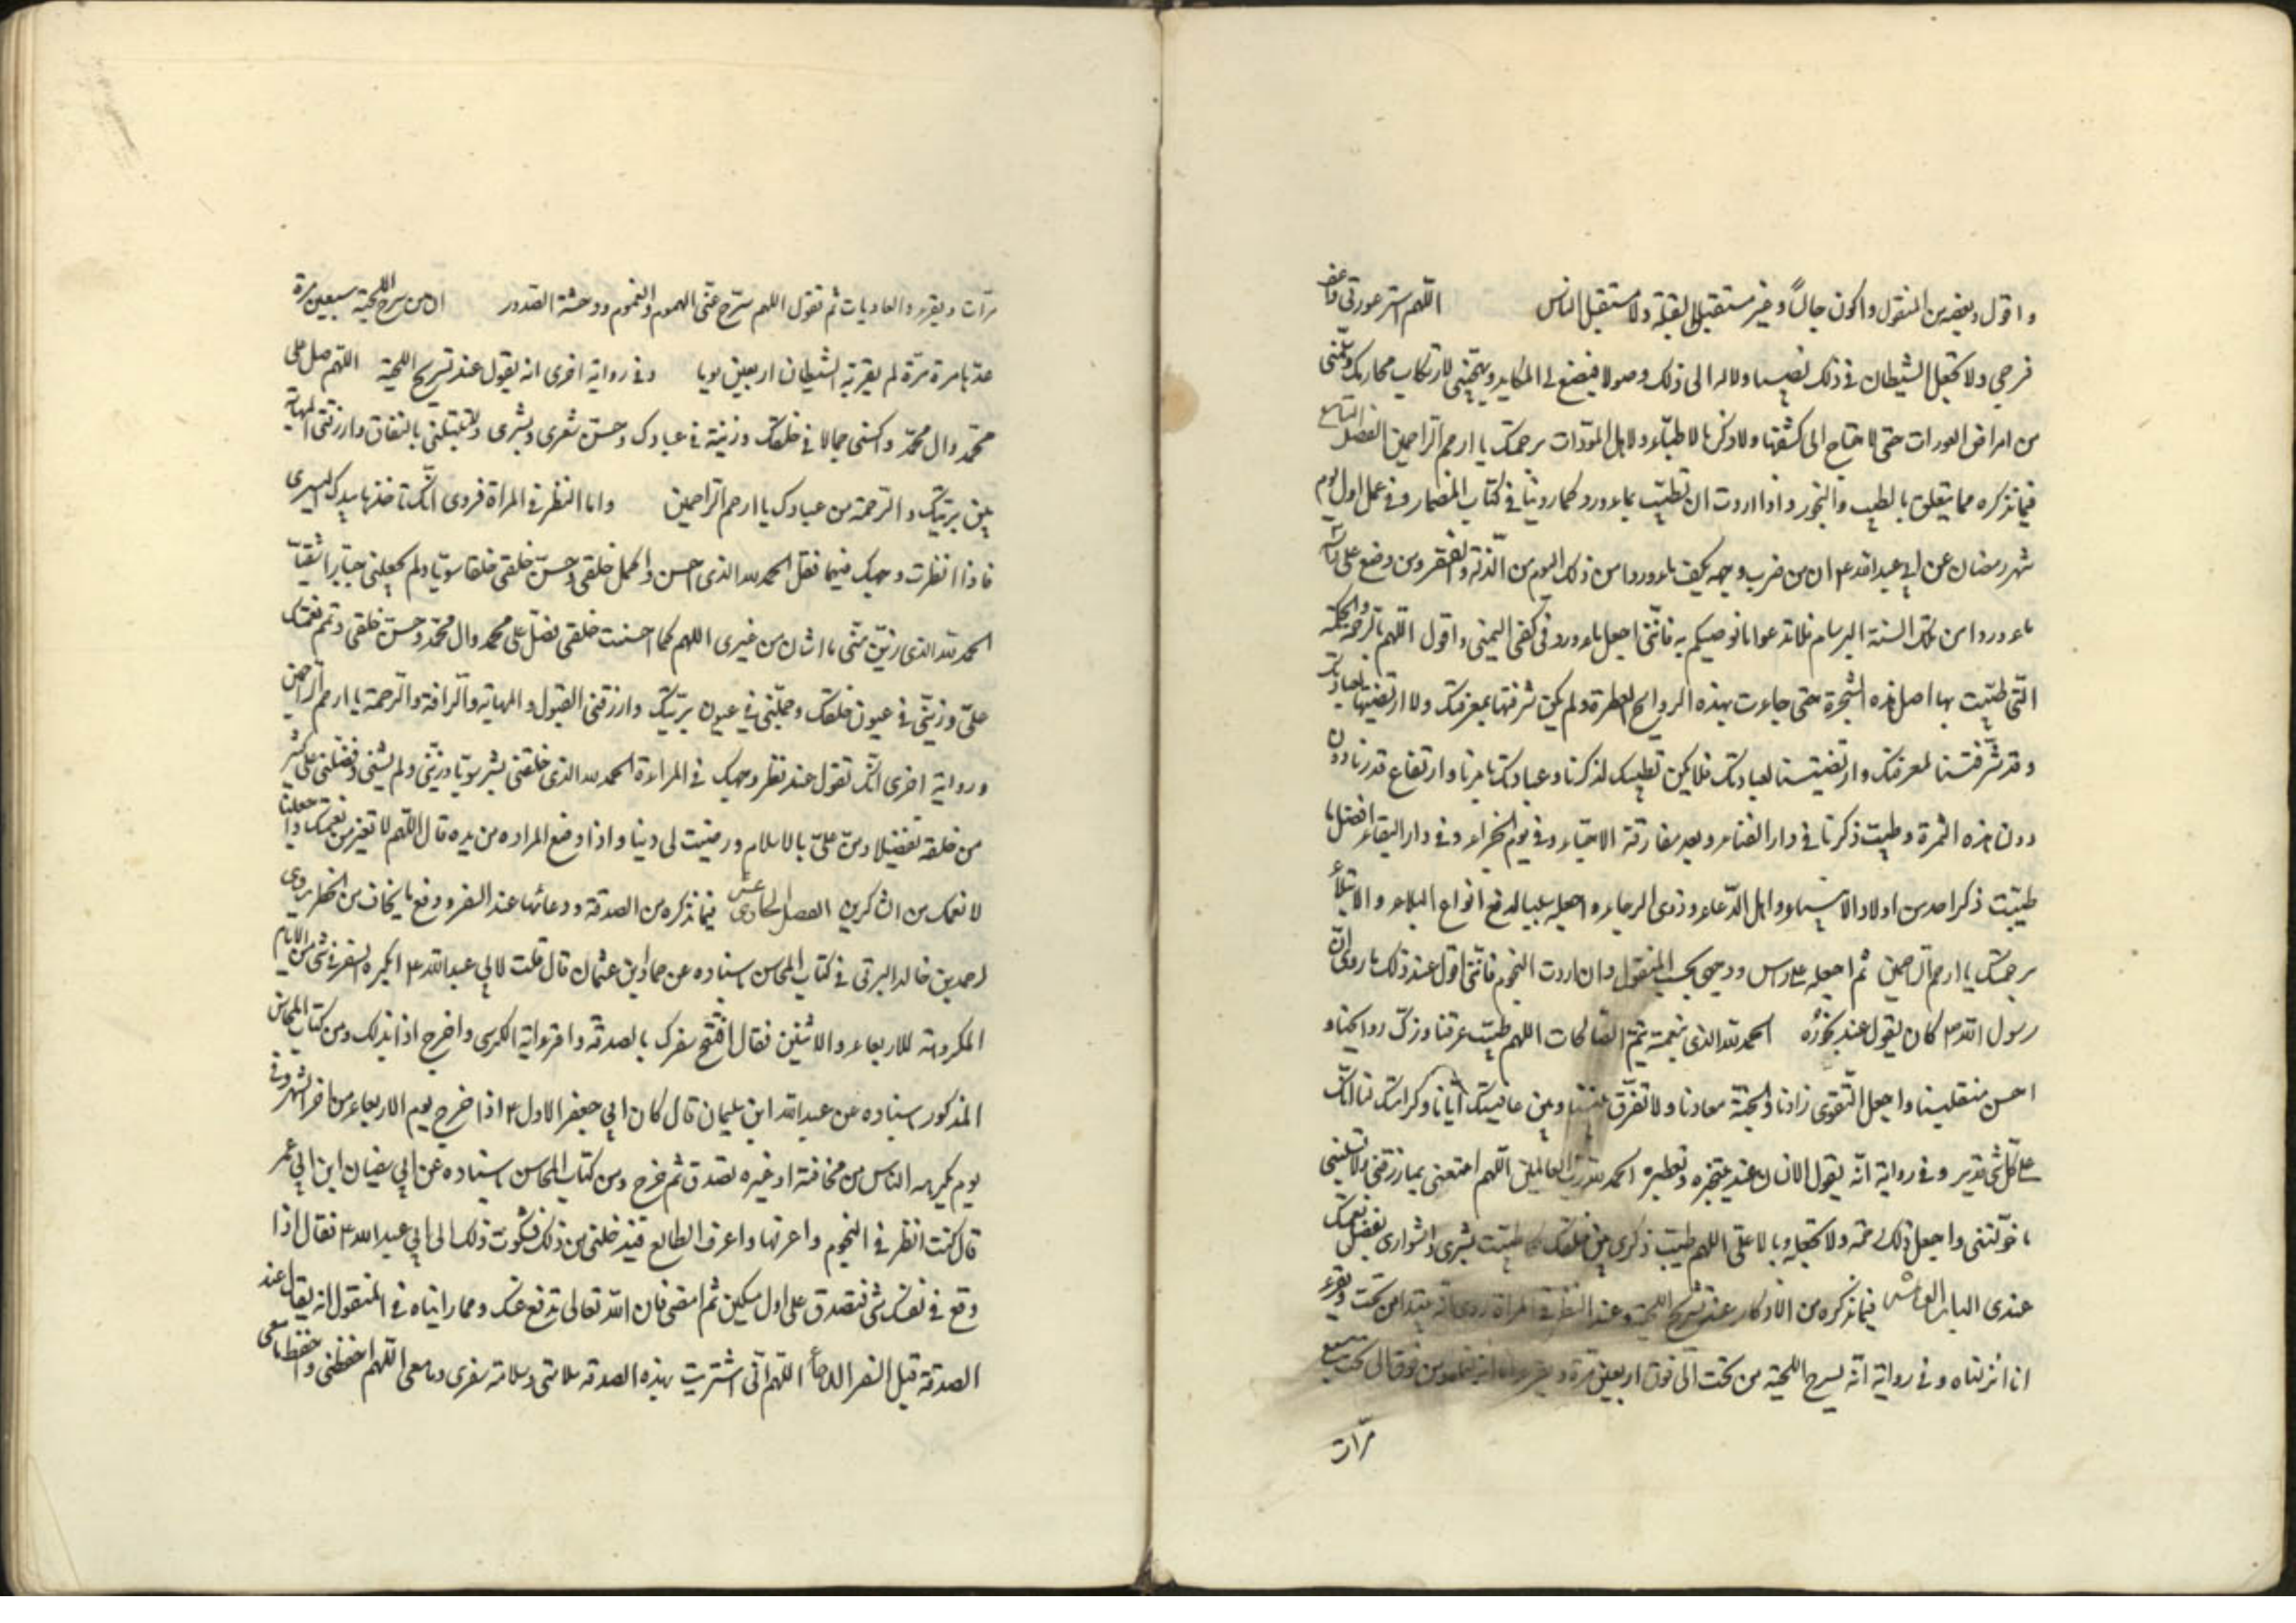 واقول وبعضه من المنقول واكون جالسا وغير مستقبل القبلة ولا مستقبل الناس اللهم استر عورتي واعف
فرجي ولا تجعل الشيطان في ذلك نصيبا ولا له الى ذلك وصولا فيضع لي المكايد ويهيجني لارتكاب محارمك وسلمني
من امراض العورات حتى لا احتاج الى كشفها ولا ذكرها للاطباء ولا اهل المودات برحمتك يا ارحم الراحمين الفصل التاسع
فيما نذكره مما يتعلق بالطيب والبخور واذا اردت ان تطيب بماء ورد كما روينا في كتاب المضمار وفي عمل اول يوم
شهر رمضان عن ابي عبد الله ع ان من ضرب وجهه بكف ماء ورد امن ذلك اليوم من الذلة والفقر ومن وضع على راسه
ماء ورد امن تلك السنة البرسام فلا تدعوا ما نوصيكم به فانني اجعل ماء ورد في كفي اليمنى واقول اللهم بالرحمة والحكمة
التي طيبت بها اصل هذه الشجرة حتى جاءت بهذه الروايح العطرة ولم يكن شرفتها بمعرفتك ولا ارتضيتها لعبادتك
وقد شرفتنا لمعرفتك وارتضيتنا لعبادتك فلا يكن تطيبك لذكرنا وعبادتك بامرنا وارتفاع قدرنا دون
دون هذه الثمرة وطيبت ذكرنا في دار الفناء وبعد مفارقة الاحياء وفي يوم الجزاء وفي دار البقاء افضل ما
طيبت ذكر احد من اولاد الانبياء واهل الدعاء وذوي الرجاء واجعله سببا لدفع انواع البلاء والابتلاء
برحمتك يا ارحم الراحمين ثم اجعله على راسي ووجهي بحسب المنقول وان اردت البخور فانني اقول عند ذلك ما روي ان
رسول الله ص كان يقول عند بخوره الحمد لله الذي بنعمته تتم الصالحات اللهم طيب عرفنا وزك روايحنا و
احسن منقلبنا واجعل التقوى زادنا والجنة معادنا ولا تفرق بيننا وبين عافيتك ايانا وكرامتك لنا انك
على كل شئ قدير وفي رواية انه يقول الانسان عند تبخره وتعطيره الحمد لله رب العالمين اللهم امتعني بما رزقتني ولا تسلبني
ما خولتني واجعل ذلك رحمة ولا تجعله وبالا علي اللهم طيب ذكري بين خلقك كما طيبت بشري واشواري بفضل نعمتك
عندي الباب العاشر فيما نذكره من الاذكار عند تسريح اللحية وعند النظر في المراة روي انه يبتدا من تحت ويقرء
انا انزلناه وفي رواية انه يسرح اللحية من تحت الى فوق اربعين مرة ويقرء انا انزلناه ومن فوق الى تحت سبع
مرات
مرات ويقرء والعاديات ثم تقول اللهم سرح عني الهموم والغموم ووحشة الصدور ان من سرح اللحية سبعين مرة
عدها مرة مرة لم يقربه الشيطان اربعين يوما وفي رواية اخرى انه يقول عند تسريح اللحية اللهم صل على
محمد وال محمد واكسني جمالا في خلقك وزينة في عبادك وحسن شعري وبشري ولا تبتليني بالنفاق وارزقني المهابة
بين بريتك والرحمة من عبادك يا ارحم الراحمين واما النظر في المراة فروي انك تاخذها بيدك اليسرى
فاذا نظرت وجهك فيها فقل الحمد لله الذي احسن واكمل خلقي وحسن خلقي خلقا سويا ولم يجعلني جبارا شقيا
الحمد لله الذي زين مني ما شان من غيري اللهم كما احسنت خلقي فصل على محمد وال محمد وحسن خلقي وتمم نعمتك
علي وزيني في عيون خلقك وجملني في عيون بريتك وارزقني القبول والمهابة والرافة والرحمة يا ارحم الراحمين
ورواية اخرى انك تقول عند نظر وجهك في المراءة الحمد لله الذي خلقني بشرا سويا وزينني ولم يشني وفضلني على كثير
من خلقه تفضيلا ومن علي بالاسلام ورضيت لي دينا واذا وضع المراه من يده قال اللهم لا تغير من نعمتك واجعلنا
لانعمك من الشاكرين الفصل الحادي عشر فيما نذكره من الصدقة ودعائها عند السفر ودفع ما يخاف من الخطر روى
احمد بن خالد البرقي في كتاب المحاسن اسناده عن حماد ابن عثمان قال قلت لابي عبد الله ع ايكره السفر في شئ من الايام
المكروهة للاربعاء والاثنين فقال افتتح سفرك بالصدقة واقرء اية الكرسي واخرج اذا بذلك ومن كتاب المحاسن
المذكور اسناده عن عبد الله ابن سليمان قال كان ابي جعفر الاول ع اذا خرج يوم الاربعاء من اخر الشهر وفي
يوم يكرهه الناس من مخافتة او غيره تصدق ثم خرج ومن كتاب المحاسن اسناده عن ابي سفيان ابن ابي عمر
قال كنت انظر في النجوم واعرفها واعرف الطالع فيدخلني من ذلك فشكوت ذلك الى ابي عبد الله ع فقال اذا
وقع في نفسك شئ فتصدق على اول مسكين ثم امض فان الله تعالى يدفع عنك ومما رايناه في المنقول انه يقال عند
الصدقة قبل السفر الدعاء اللهم اني اشتريت بهذه الصدقة سلامتي وسلامة سفري وما معي اللهم احفظني واحفظ ما معي